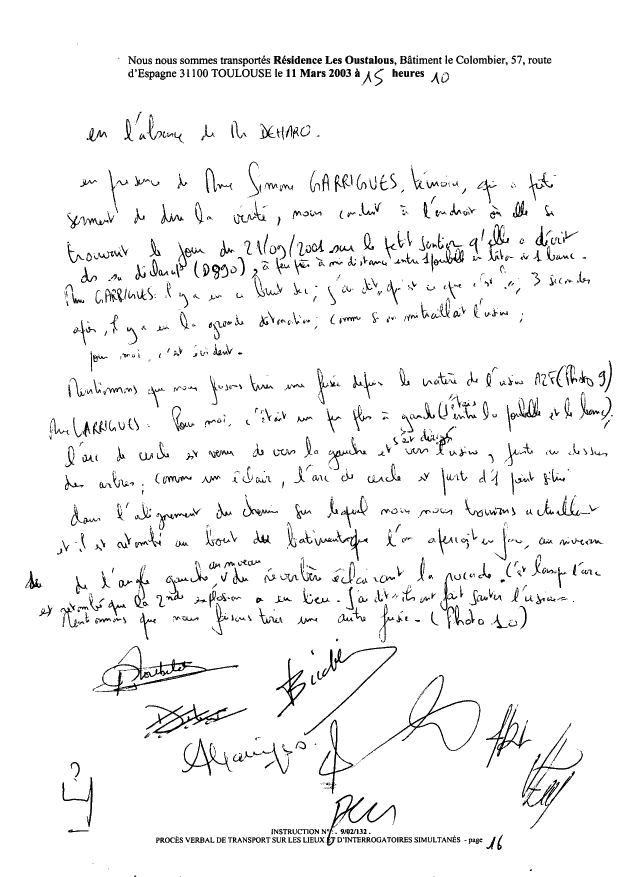 Nous nous sommes transportés Résidence Les Oustalous, Bâtiment le Colombier, 57, route
d'Espagne 31100 TOULOUSE le 11 Mars 2003 à 15 heures 10
en l'absence de Me DEHARO.
en présence de Mme Simone GARRIGUES, témoin, qui a prêté
serment de dire la vérité, nous conduit à l'endroit où elle se
trouvait le jour du 21/09/2001 sur le petit sentier qu'elle a décrit
ds sa déclarat° (D890), à peu près à mi distance entre 1 poubelle en béton et 1 banc.
Mme GARRIGUES: il y a eu un bruit sec; j'ai dit, qu'est ce que c'est; 3 secondes
après, il y a eu la grande détonation; comme si on mitraillait l'usine;
pour moi, c'est évident.
Mentionnons que nous faisons tirer une fusée depuis le cratère de l'usine AZF (Photo 9)
Mme GARRIGUES: Pour moi, c'était un peu plus à gauche (j'étais entre la poubelle et le banc).
l'arc de cercle est venu de vers la gauche et s'est dirigé vers l'usine, juste au dessus
des arbres; comme un éclair, l'arc de cercle est parti d'1 point situé
dans l'alignement du chemin sur lequel nous nous trouvons actuellement
et il est retombé au bout des bâtiments que l'on aperçoit en face, au niveau
de l'angle gauche, au niveau du réverbère éclairant la rocade. C'est lorsque l'arc
est retombé que la 2nde explosion a eu lieu. J'ai dit "ils ont fait sauter l'usine".
Mentionnons que nous faisons tirer une autre fusée. (Photo 10)
INSTRUCTION N° . 9/02/132 .
PROCÈS VERBAL DE TRANSPORT SUR LES LIEUX ET D'INTERROGATOIRES SIMULTANÉS - page 16